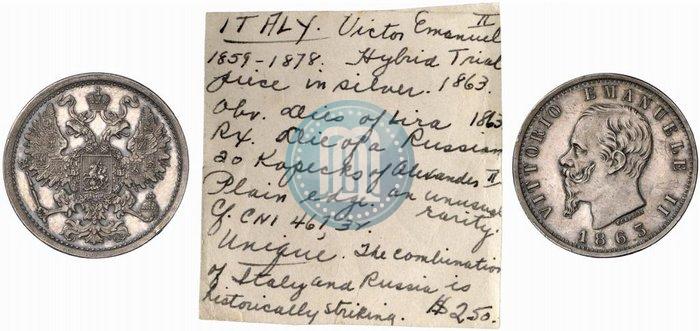 ITALY. Victor Emanuel II
1859-1878. Hybrid Trial
piece in silver. 1863.
Obv. dies of lira 1863
Rx. die of a Russian
20 Kopecks of Alexander II
Plain edge. an unusual
rarity.
Cf. CNI 46/
Unique. The combination
of Italy and Russia is
historically striking. $250.
VITTORIO EMANUELE II
1863